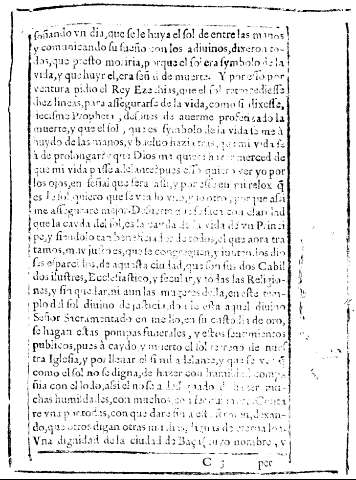 soñando vn dia, que se le huya el sol de entre las manos
y comunicando su sueño con los adiuinos, dixeron to-
dos, que presto moriria, porque el sol era symbolo de la
vida, y que huyr el, era señal de muerte. Y por esso por
ventura pidio el Rey Ezechias, que el sol retrocediesse
diez lineas, para assegurarse de la vida, como si dixesse,
Propheta, despues de auerme profetizado la
muerte, y que el sol, que es symbolo de la vida se me à
huydo de las manos, y buelto hazia tras, que mi vida se
à de prolongar y que Dios me quiere hazer merced de
que mi vida passe adelante? pues quiero ver yo por
los ojos, en señal que sera assi, y por esso en mi relox q̃
es de sol quiero que le vea lo vno, y lo otro, porque assi
me assegurare mejor. De suerte con claridad
que la cayda del sol, es la cayda de la vida de vn Prin
pe, y siendolo tan benefica de todos, el que aora tra
tamos, muy justo es, que se congreguen, y junten los dos
de aquesta ciudad, que son sus dos Cabil
dos ilustres, Ecclesiastico, y secular, y todas las Religio-
nes, y sin quedar, ni aun las mugeres della, en este tem-
plo del sol diuino de justicia, a aquel diuino
Señor Sacramentado en medio, en su custodia de oro,
se hagan estas pompas funerales, y estos sentimientos
publicos, pues à caydo y muerto el sol terreno de nues
tra Iglesia, y por llenar el simil adelante, y que se vea q̃
como el sol no se digna, de hazer con humildad compa-
ñia con el lodo, assi el no se à de hazer mu-
chas humildades, con muchos,
re vna por todas, con que dare fin a este sermon, dexan-
do, que otros digan otras muchas, dignas de eterna loa.
Vna dignidad de la ciudad de Baça, cuyo nombre, y
C 3 per